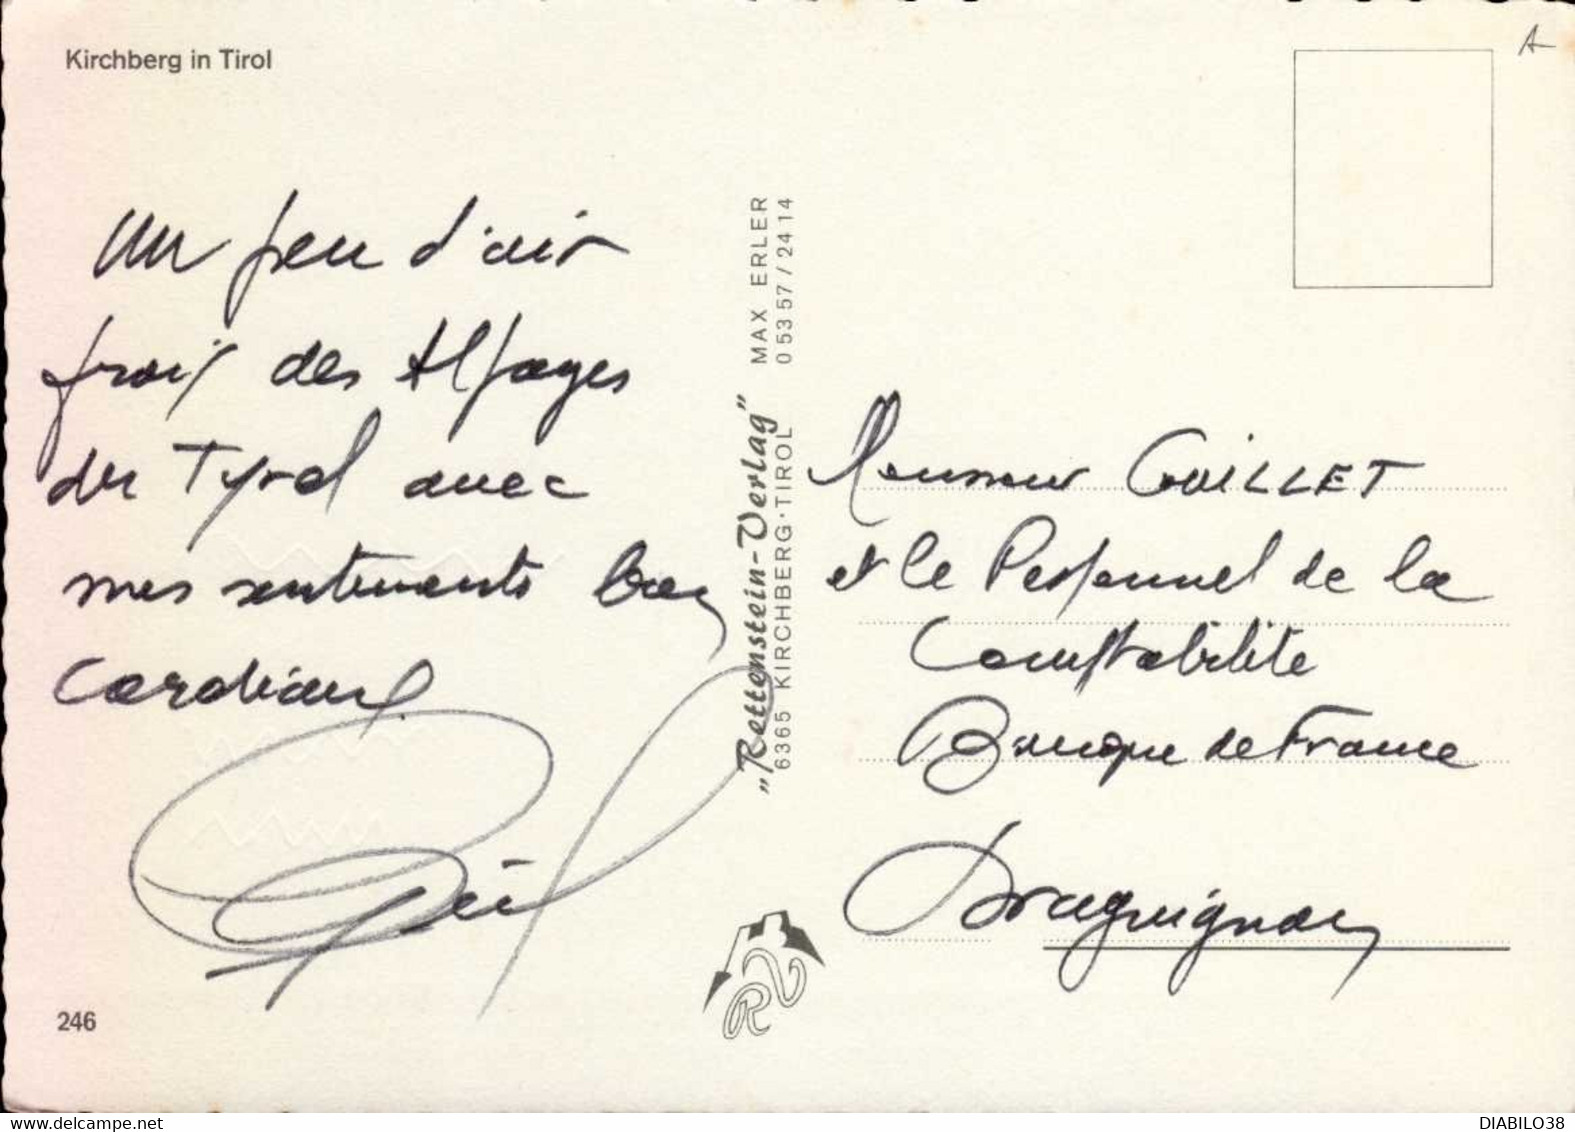 Kirchberg in Tirol
A
Un peu d'air
frais des Alpages
du Tyrol avec
mes sentiments bien
Cordiaux.
246
„Rettenstein-Verlag" MAX ERLER
6365 KIRCHBERG·TIROL 05357/2414
RV
Monsieur GUILLET
et le Personnel de la
Comptabilité
Banque de France
Draguignan
DIABILO38